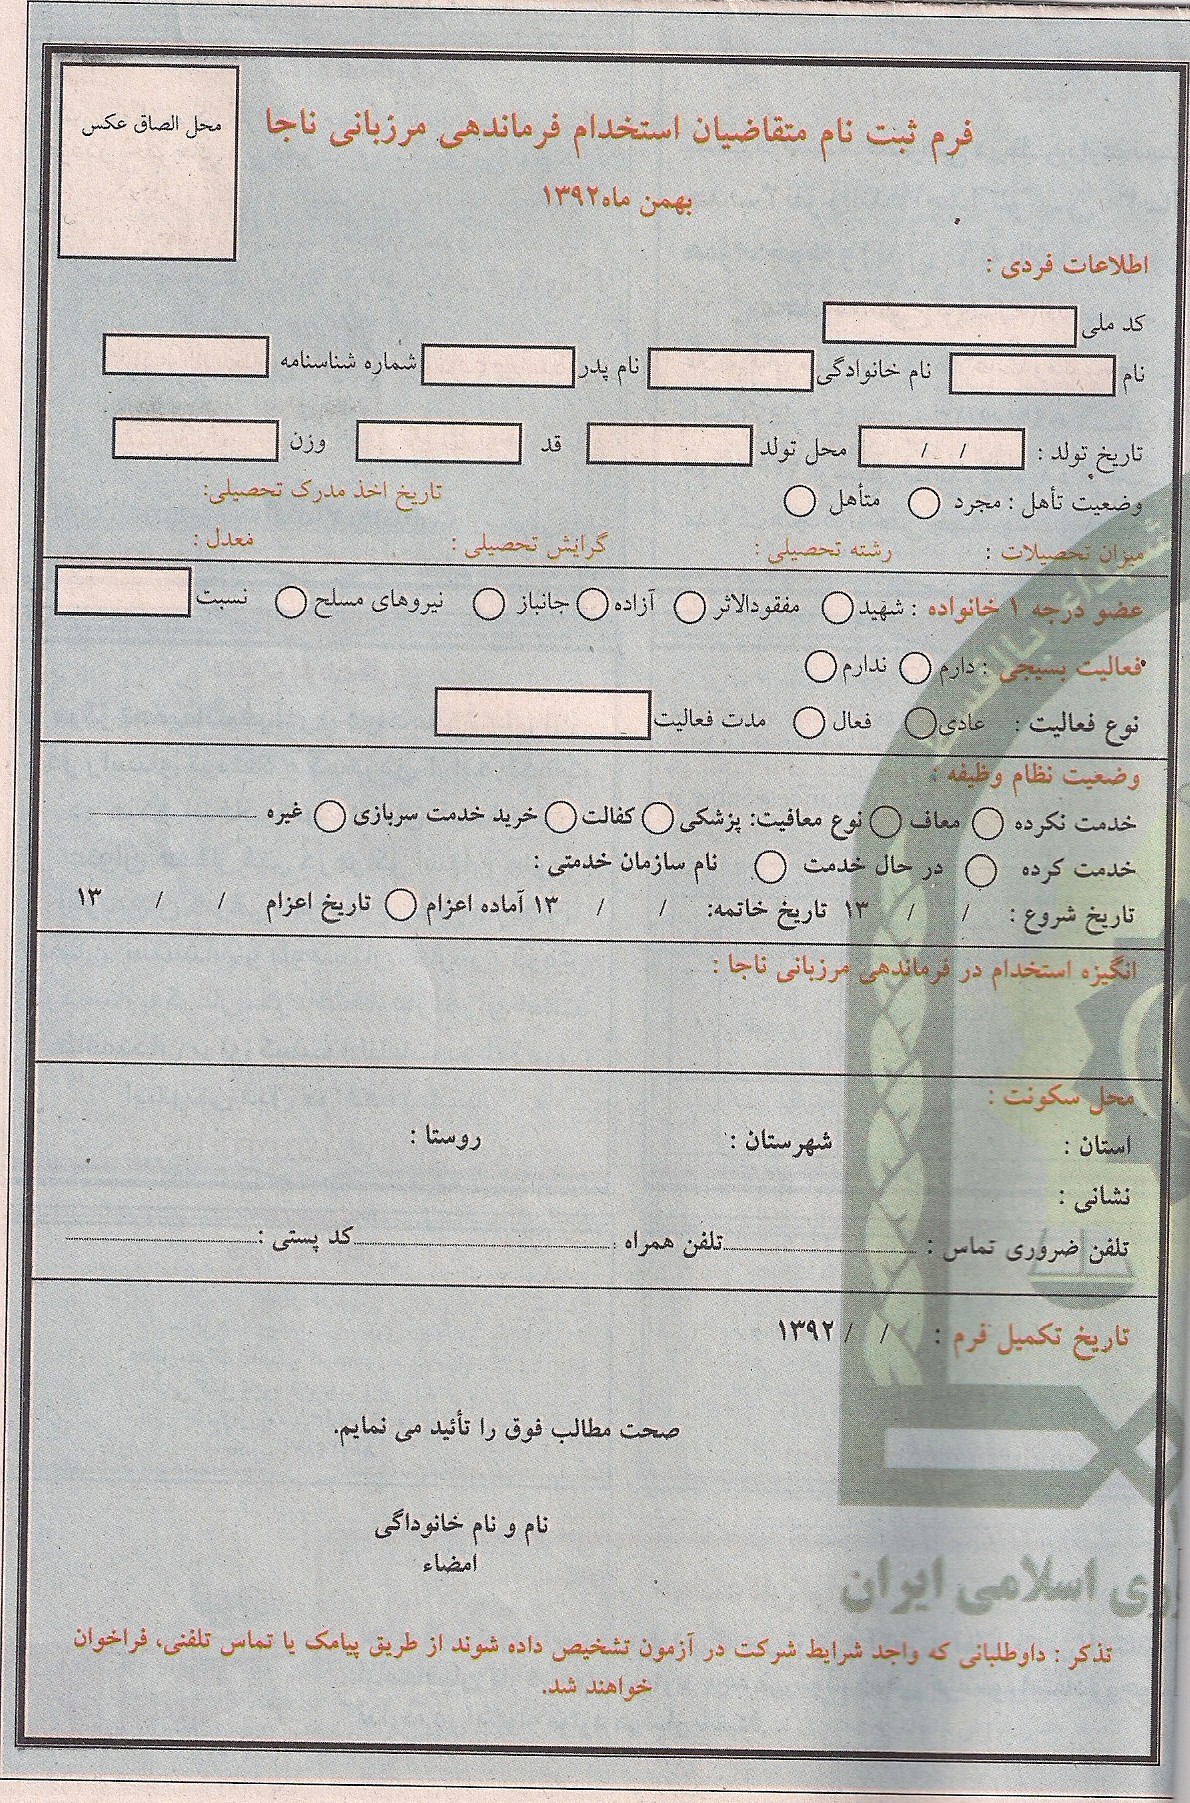 محل الصاق عکس
فرم ثبت نام متقاضیان استخدام فرماندهی مرزبانی ناجا
بهمن ماه۱۳۹۲
اطلاعات فردی :
کد ملی
نام نام خانوادگی نام پدر شماره شناسنامه
تاریخ تولد : / / محل تولد قد وزن
وضعیت تأهل : مجرد متأهل تاریخ اخذ مدرک تحصیلی:
میزان تحصیلات : رشته تحصیلی : گرایش تحصیلی : معدل :
عضو درجه ۱ خانواده : شهید مفقودالاثر آزاده جانباز نیروهای مسلح نسبت
فعالیت بسیجی : دارم ندارم
نوع فعالیت : عادی فعال مدت فعالیت
وضعیت نظام وظیفه :
خدمت نکرده معاف نوع معافیت: پزشکی کفالت خرید خدمت سربازی غیره
خدمت کرده در حال خدمت نام سازمان خدمتی :
تاریخ شروع : / / ۱۳ تاریخ خاتمه: / / ۱۳ آماده اعزام تاریخ اعزام / / ۱۳
انگیزه استخدام در فرماندهی مرزبانی ناجا :
محل سکونت :
استان : شهرستان : روستا :
نشانی :
تلفن ضروری تماس : تلفن همراه : کد پستی :
تاریخ تکمیل فرم : / / ۱۳۹۲
صحت مطالب فوق را تأئید می نمایم.
نام و نام خانوداگی
امضاء
وری اسلامی ایران
تذکر : داوطلبانی که واجد شرایط شرکت در آزمون تشخیص داده شوند از طریق پیامک یا تماس تلفنی، فراخوان
خواهند شد.